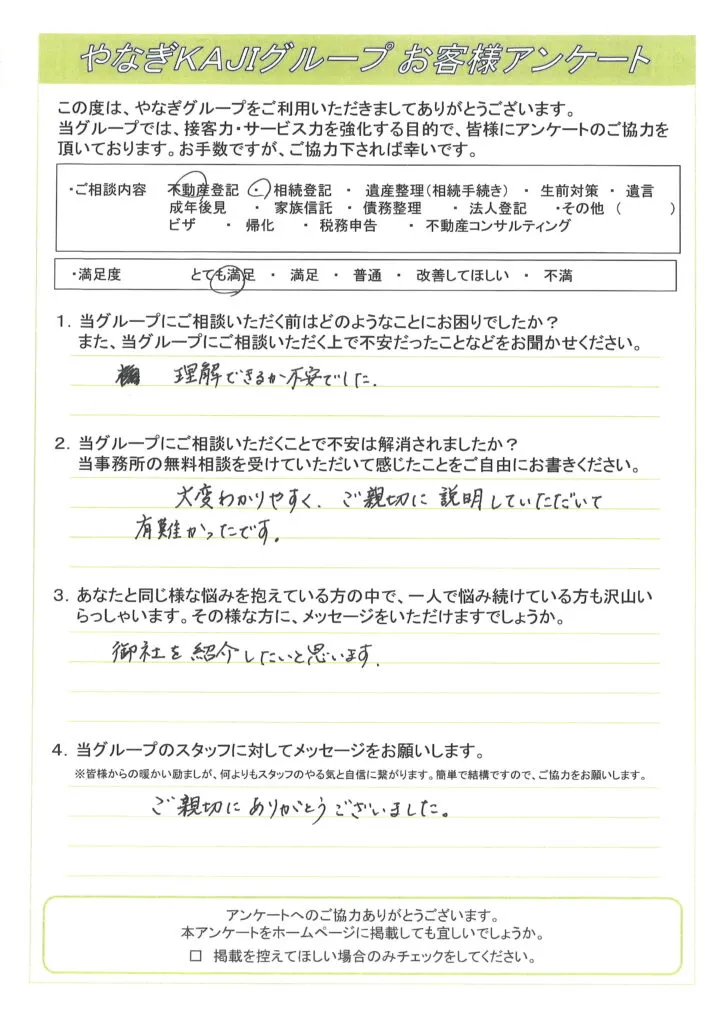 やなぎKAJIグループ お客様アンケート
この度は、やなぎグループをご利用いただきましてありがとうございます。
当グループでは、接客力・サービス力を強化する目的で、皆様にアンケートのご協力を
頂いております。お手数ですが、ご協力下されば幸いです。
・ご相談内容 不動産登記 ・ 相続登記 ・ 遺産整理(相続手続き) ・ 生前対策 ・ 遺言
成年後見 ・ 家族信託 ・ 債務整理 ・ 法人登記 ・その他 ( )
ビザ ・ 帰化 ・ 税務申告 ・ 不動産コンサルティング
・満足度 とても満足 ・ 満足 ・ 普通 ・ 改善してほしい ・ 不満
1. 当グループにご相談いただく前はどのようなことにお困りでしたか?
また、当グループにご相談いただく上で不安だったことなどをお聞かせください。
理解できるか不安でした.
2. 当グループにご相談いただくことで不安は解消されましたか?
当事務所の無料相談を受けていただいて感じたことをご自由にお書きください。
大変わかりやすく. ご親切に説明していただいて
有難かったです。
3. あなたと同じ様な悩みを抱えている方の中で、一人で悩み続けている方も沢山い
らっしゃいます。その様な方に、メッセージをいただけますでしょうか。
御社を紹介したいと思います.
4. 当グループのスタッフに対してメッセージをお願いします。
※皆様からの暖かい励ましが、何よりもスタッフのやる気と自信に繋がります。簡単で結構ですので、ご協力をお願いします。
ご親切にありがとうございました。
アンケートへのご協力ありがとうございます。
本アンケートをホームページに掲載しても宜しいでしょうか。
□ 掲載を控えてほしい場合のみチェックをしてください。